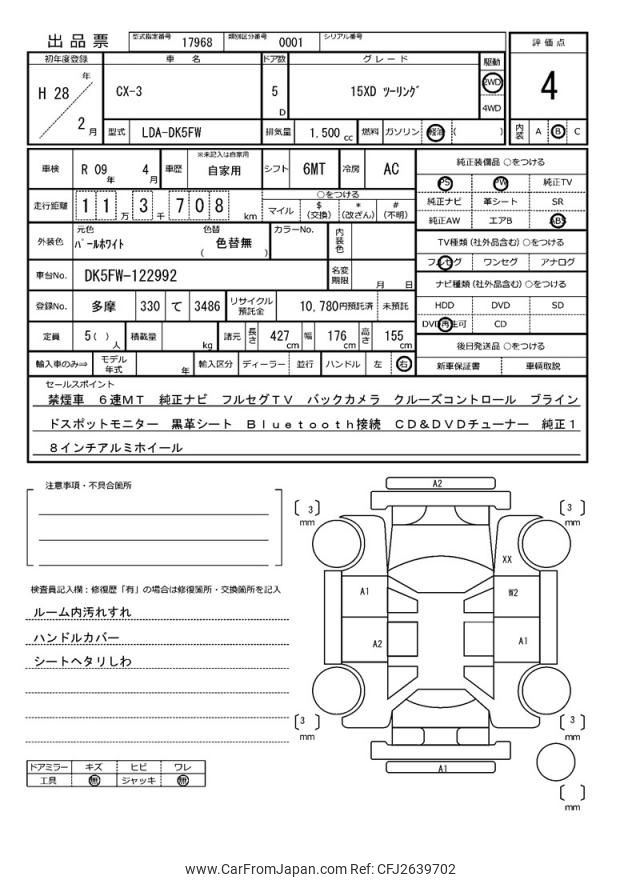 出品票 型式指定番号 17968 類別区分番号 0001 シリアル番号
評価点
4
内装 A B C
初年度登録 車名 ドア数 グレード 駆動
H 28 年 2 月
CX-3 5 D 15XD ツーリング 2WD 4WD
型式 LDA-DK5FW 排気量 1.500 cc 燃料 ガソリン 軽油 ( )
車検 R 09 年 4 月 車歴 ※未記入は自家用 自家用 シフト 6MT 冷房 AC
走行距離 1 1 万 3 千 7 0 8 km
○をつける
マイル $(交換) *(改ざん) #(不明)
外装色 元色 パールホワイト 色替 ( 色替無 ) カラーNo. 内装色
車台No. DK5FW-122992 名変期限 月 日
登録No. 多摩 330 て 3486 リサイクル預託金 10,780円預託済 未預託
定員 5( ) 人 積載量 kg 諸元 長さ 427 cm 幅 176 cm 高さ 155 cm
輸入車のみ⇒ モデル年式 年 輸入区分 ディーラー 並行 ハンドル 左 右
純正装備品 ○をつける
PS PW 純正TV
純正ナビ 革シート SR
純正AW エアB ABS
TV種類 (社外品含む) ○をつける
フルセグ ワンセグ アナログ
ナビ種類 (社外品含む) ○をつける
HDD DVD SD
DVD再生可 CD
後日発送品 ○をつける
新車保証書 車輌取説
セールスポイント
禁煙車 6速MT 純正ナビ フルセグTV バックカメラ クルーズコントロール ブライン
ドスポットモニター 黒革シート Bluetooth接続 CD&DVDチューナー 純正1
8インチアルミホイール
注意事項・不具合箇所
検査員記入欄:修復歴「有」の場合は修復箇所・交換箇所を記入
ルーム内汚れすれ
ハンドルカバー
シートヘタリしわ
ドアミラー キズ ヒビ ワレ
工具 無 ジャッキ 無
A2
[ 3 ] mm [ 3 ] mm
XX
A1 W2
A2 A1
[ 3 ] mm [ 3 ] mm
A1
[ ] mm
www.CarFromJapan.com Ref: CFJ2639702